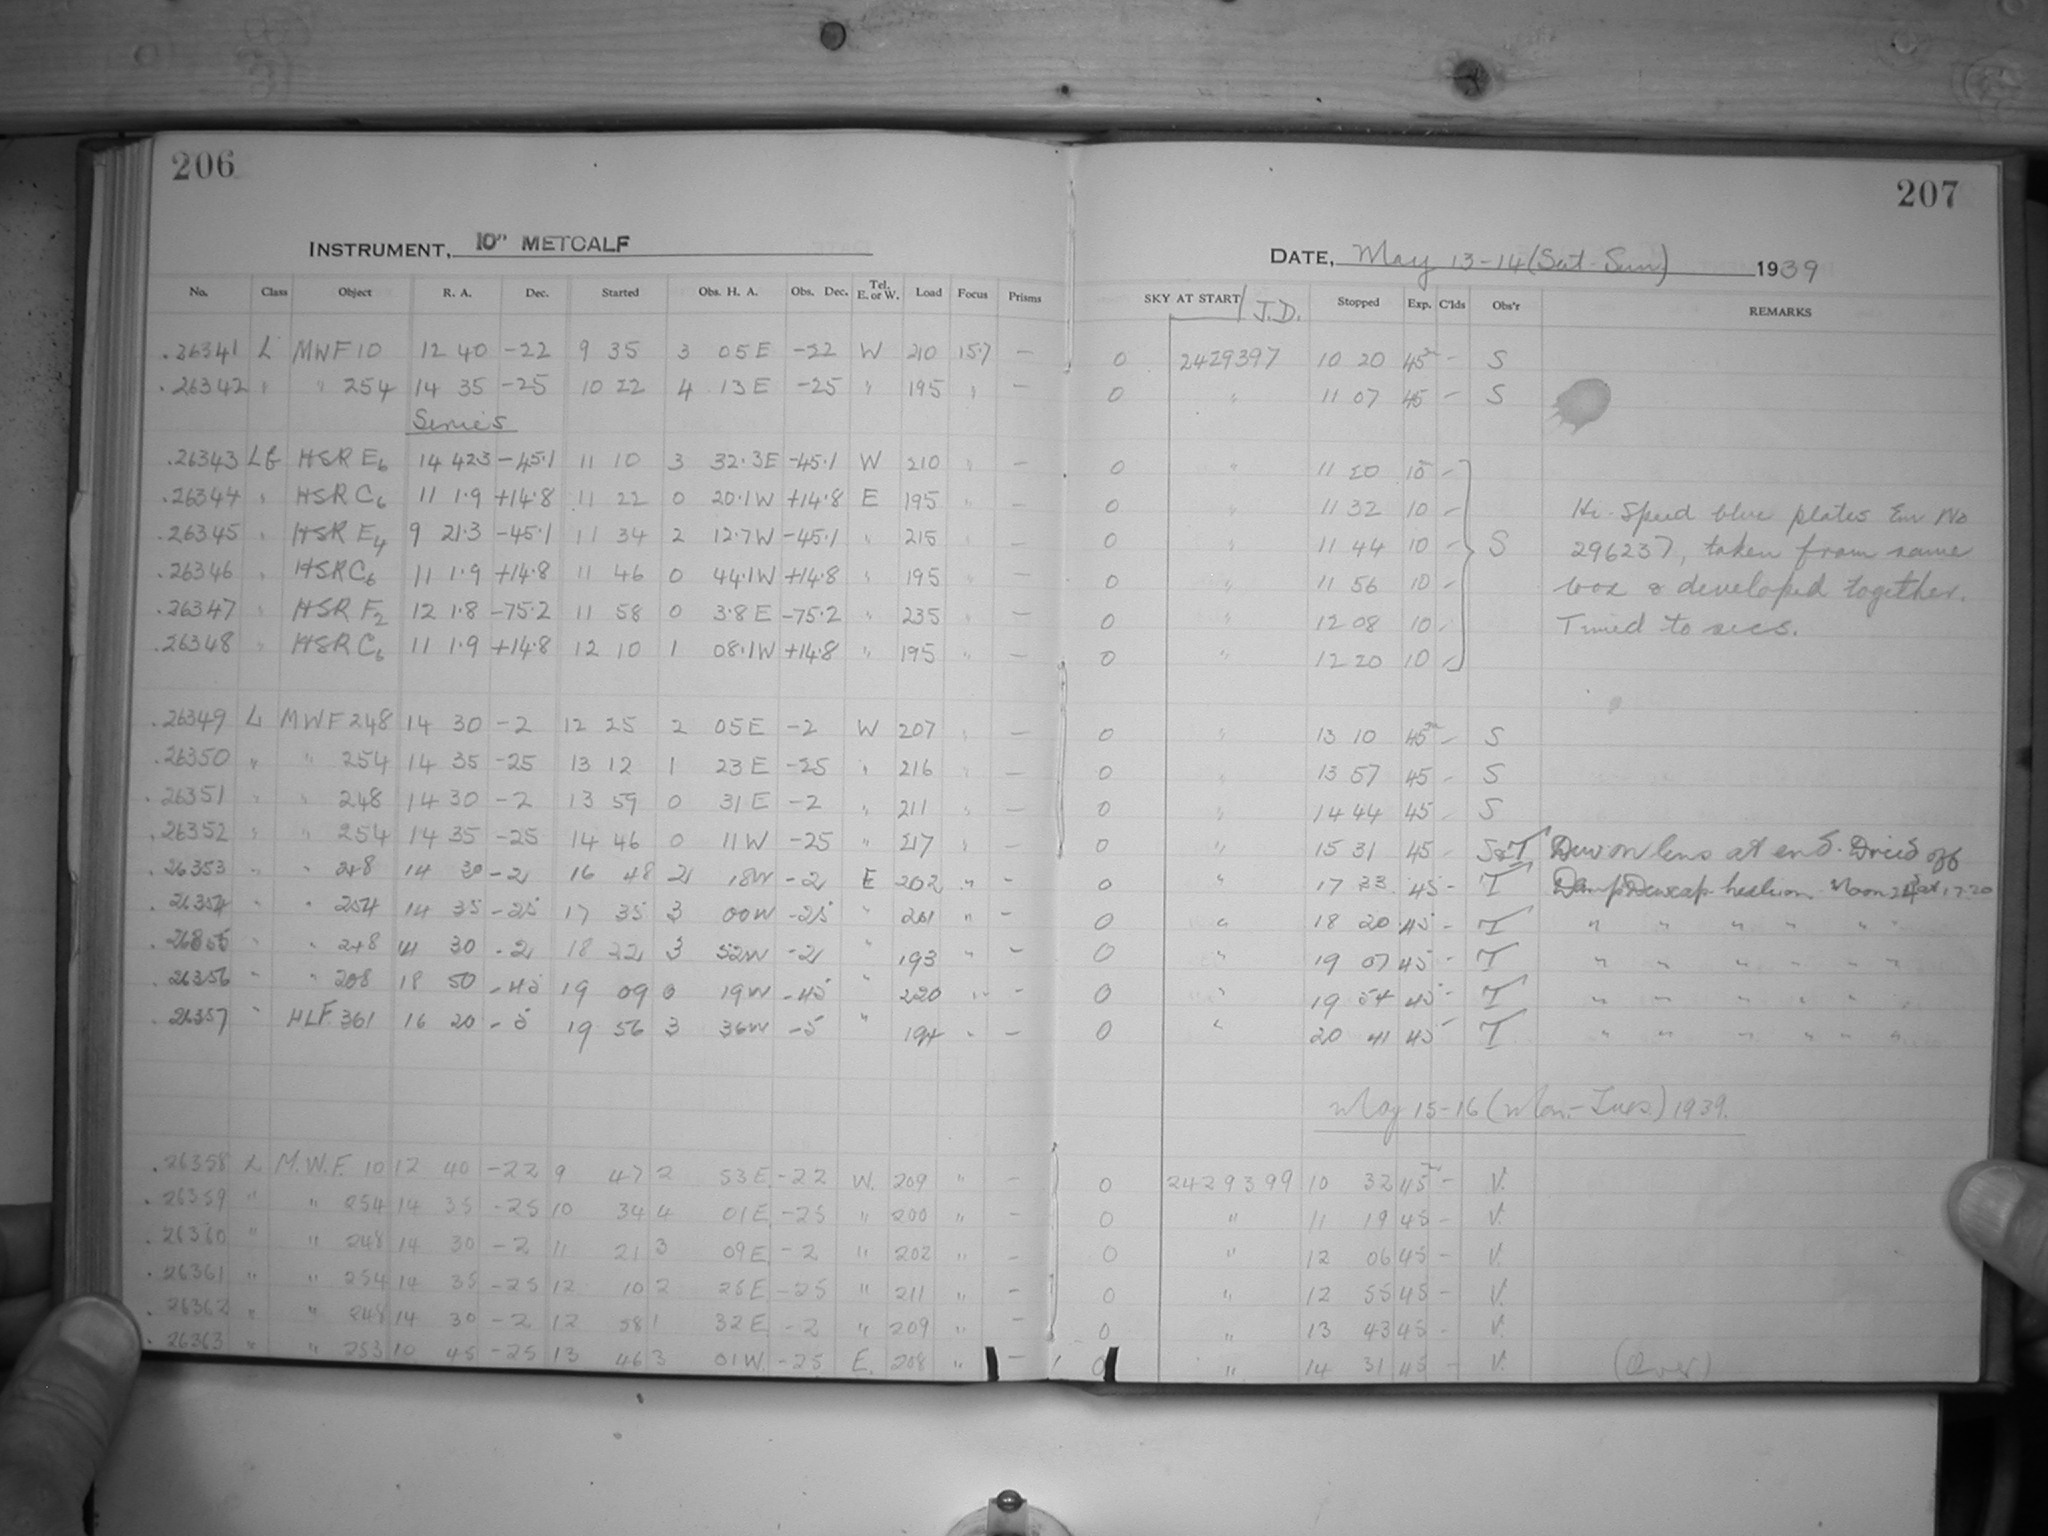 206
207
INSTRUMENT, 10" METCALF
DATE, May 13-14 (Sat-Sun) 1939
No. Class Object R. A. Dec. Started Obs. H. A. Obs. Dec. Tel. E. or W. Load Focus Prisms SKY AT START / J.D. Stopped Exp. C'lds Obs'r REMARKS
.26341 L MWF 10 12 40 -22 9 35 3 05 E -22 W 210 15.7 — 0 2429397 10 20 45m - S
.26342 " " 254 14 35 -25 10 22 4 13 E -25 " 195 " — 0 " 11 07 45 - S
Series
.26343 LB HSR E6 14 42.3 -45.1 11 10 3 32.3E -45.1 W 210 " — 0 " 11 20 10 -
.26344 " HSR C6 11 1.9 +14.8 11 22 0 20.1W +14.8 E 195 " — 0 " 11 32 10 - Hi-Speed blue plates Em No
.26345 " HSR E4 9 21.3 -45.1 11 34 2 12.7W -45.1 " 215 " — 0 " 11 44 10 - S 296237, taken from same
.26346 " HSR C6 11 1.9 +14.8 11 46 0 44.1W +14.8 " 195 " — 0 " 11 56 10 - box & developed together.
.26347 " HSR F2 12 1.8 -75.2 11 58 0 3.8 E -75.2 " 235 " — 0 " 12 08 10 - Timed to secs.
.26348 " HSR C6 11 1.9 +14.8 12 10 1 08.1W +14.8 " 195 " — 0 " 12 20 10 -
.26349 L MWF 248 14 30 -2 12 25 2 05 E -2 W 207 " — 0 " 13 10 45m - S
.26350 " " 254 14 35 -25 13 12 1 23 E -25 " 216 " — 0 " 13 57 45 - S
.26351 " " 248 14 30 -2 13 59 0 31 E -2 " 211 " — 0 " 14 44 45 - S
.26352 " " 254 14 35 -25 14 46 0 11 W -25 " 217 " — 0 " 15 31 45 - S&T Dew on lens at end. Dried off
.26353 " " 248 14 30 -2 16 48 2 18W -2 E 202 " — 0 " 17 33 45 - T Damp Dewcap heat on. Moon
.26354 " " 254 14 35 -25 17 35 3 00W -25 " 201 " — 0 " 18 20 45 - T " " " " " "
.26355 " " 248 14 30 -2 18 22 3 52W -2 " 193 " — 0 " 19 07 45 - T " " " " " "
.26356 " " 208 18 50 -45 19 09 0 19W -45 " 220 " — 0 " 19 54 45 - T " " " " " "
.26357 " HLF 361 16 20 -5 19 56 3 36W -5 " 194 " — 0 " 20 41 45 - T " " " " " "
May 15-16 (Mon.-Tues) 1939.
.26358 L M.W.F. 10 12 40 -22 9 47 2 53 E -22 W. 209 " — 0 2429399 10 32 45m - V.
.26359 " " 254 14 35 -25 10 34 4 01 E -25 " 200 " — 0 " 11 19 45 - V.
.26360 " " 248 14 30 -2 11 21 3 09 E -2 " 202 " — 0 " 12 06 45 - V.
.26361 " " 254 14 35 -25 12 10 2 25 E -25 " 211 " — 0 " 12 55 45 - V.
.26362 " " 248 14 30 -2 12 58 1 32 E -2 " 209 " — 0 " 13 43 45 - V.
.26363 " " 253 10 45 -25 13 46 3 01 W. -25 E. 208 " — 0 " 14 31 45 - V. (Over)